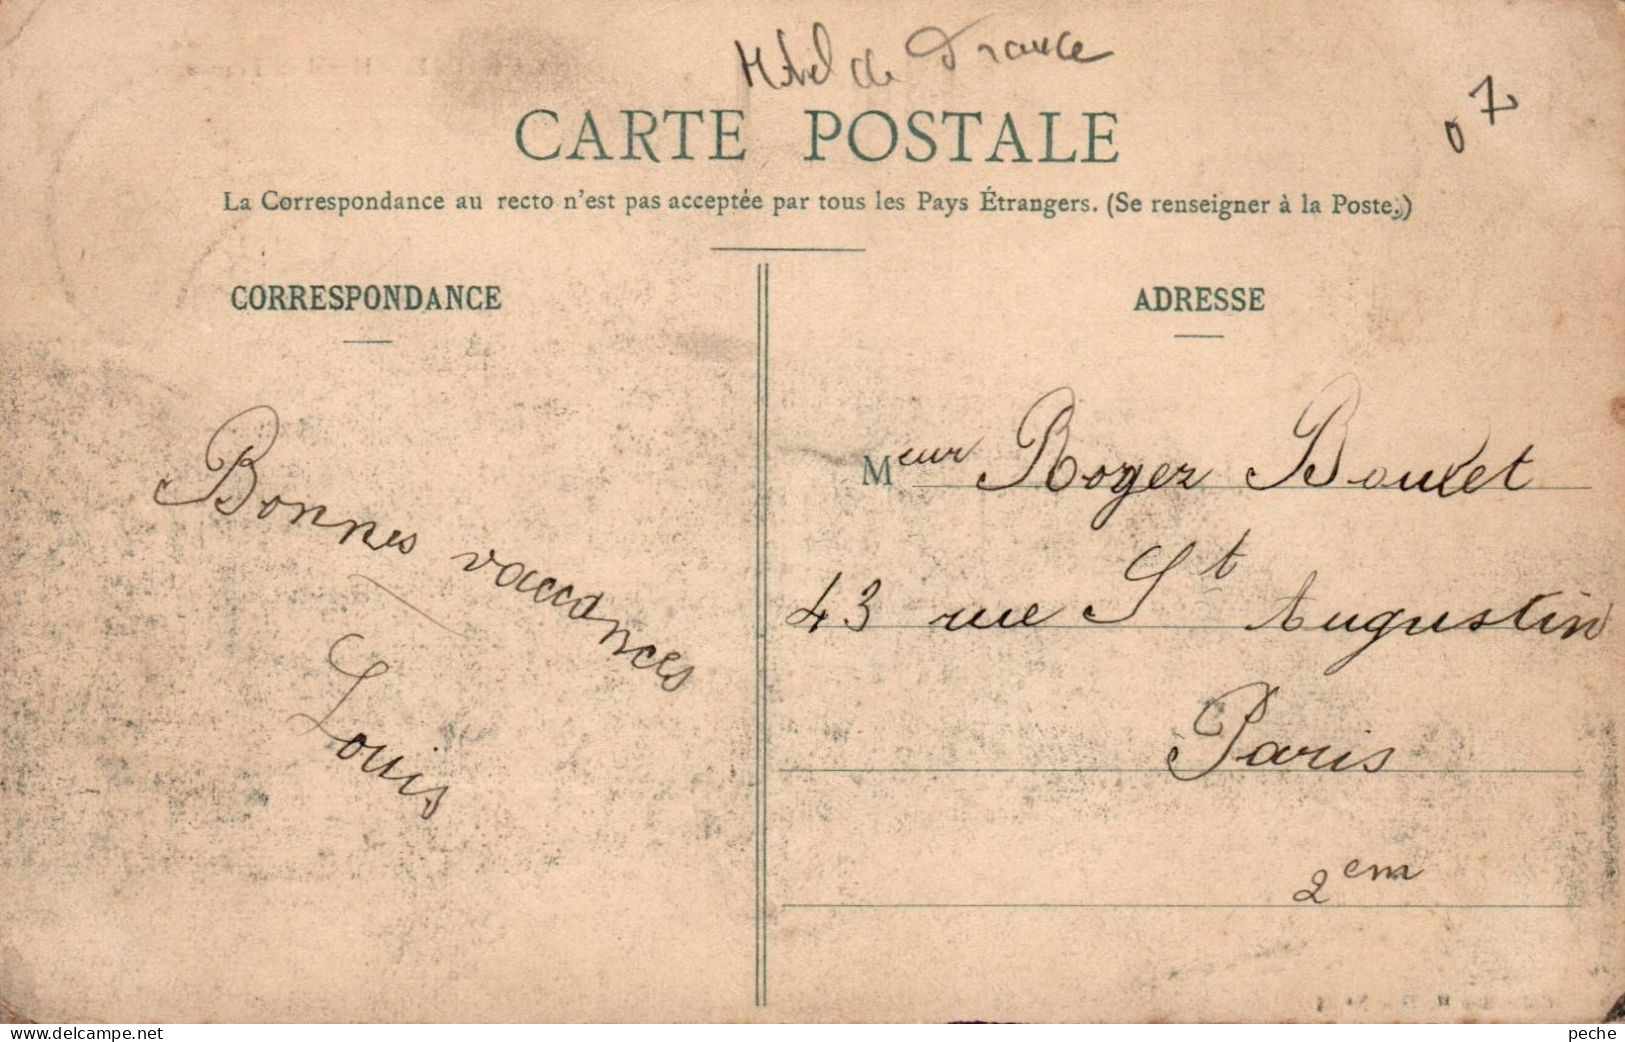 Hôtel de France
07
CARTE POSTALE
La Correspondance au recto n'est pas acceptée par tous les Pays Étrangers. (Se renseigner à la Poste.)
CORRESPONDANCE
Bonnes vaccances
Louis
ADRESSE
Meur Roger Boulet
43 rue St Augustin
Paris
2em
www.delcampe.net
peche